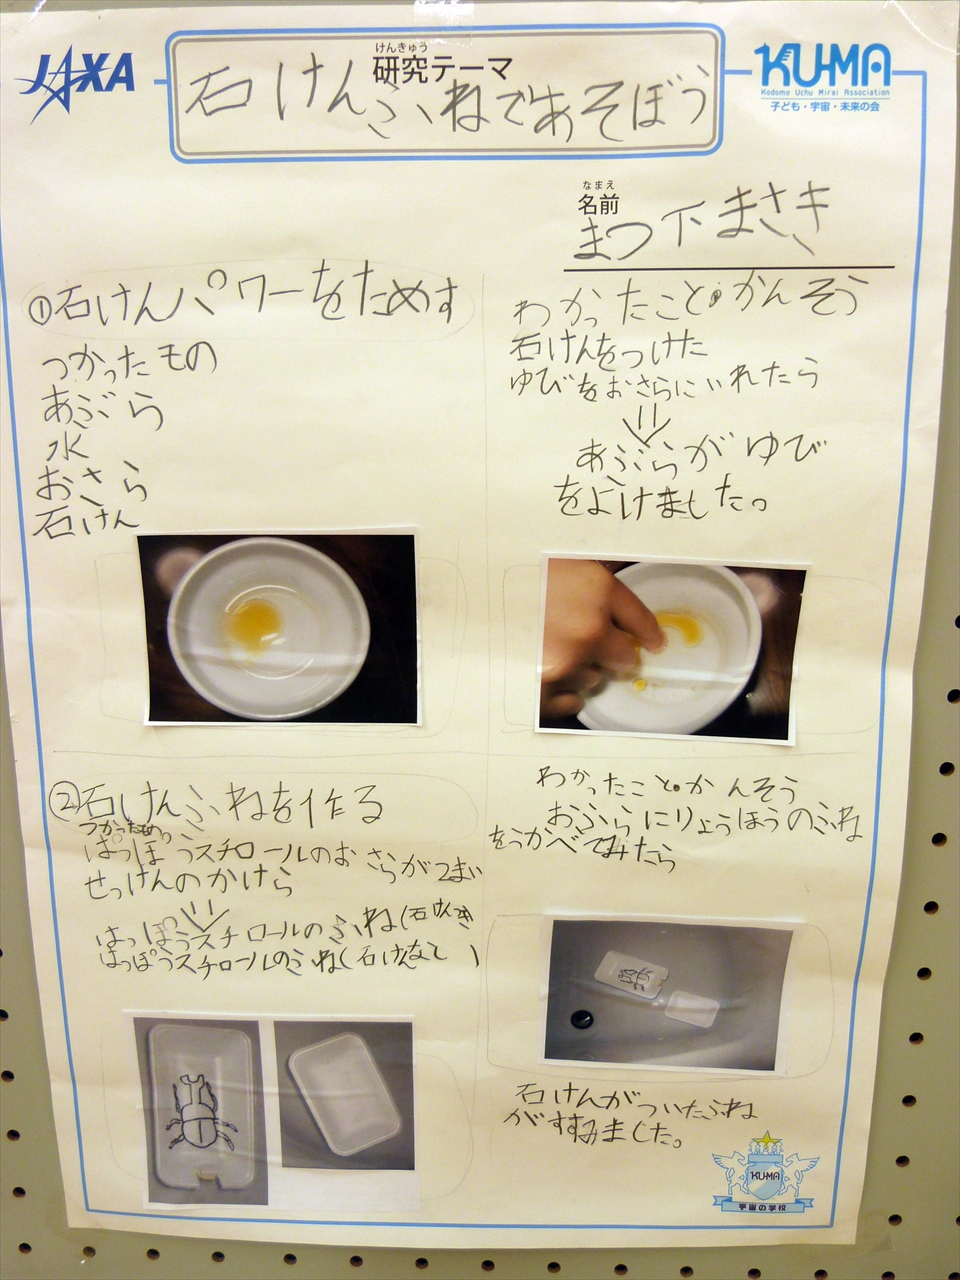 JAXA
けんきゅう
研究テーマ
石けんふねであそぼう
KU-MA
Kodomo Uchu Mirai Association
子ども・宇宙・未来の会
なまえ
名前
まつ下まさき
①石けんパワーをためす
つかったもの
あぶら
水
おさら
石けん
わかったこと・かんそう
石けんをつけた
ゆびをおさらにいれたら
あぶらがゆび
をよけました。
②石けんふねを作る
つかったもの
はっぽうスチロールのおさらが2まい
せっけんのかけら
はっぽうスチロールのふね(石けんつき
はっぽうスチロールのふね(石けんなし)
わかったこと・かんそう
おふろにりょうほうのふね
をうかべてみたら
石けんがついたふね
がすすみました。
KU-MA
宇宙の学校